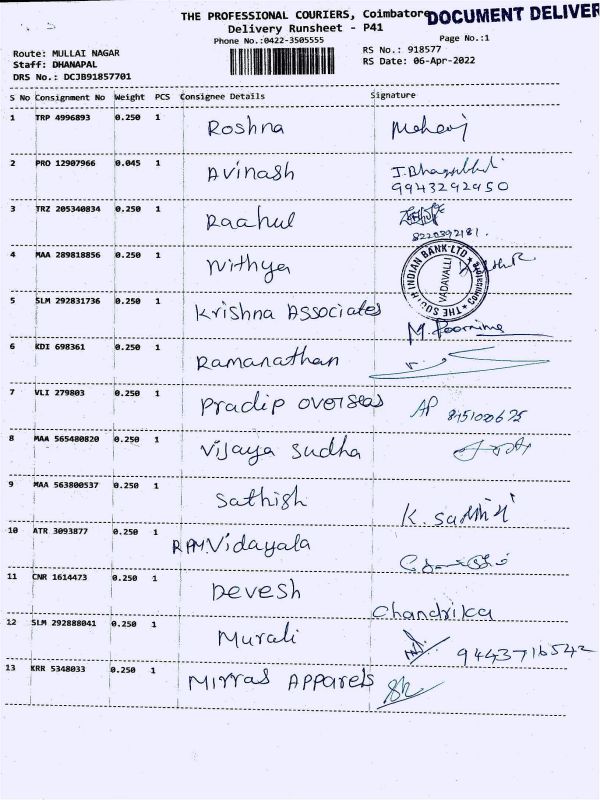 THE PROFESSIONAL COURIERS, Coimbatore
DOCUMENT DELIVER
Delivery Runsheet - P41
Phone No.:0422-3505555
Page No.:1
Route: MULLAI NAGAR
RS No.: 918577
Staff: DHANAPAL
RS Date: 06-Apr-2022
DRS No.: DCJB91857701
S No Consignment No Weight PCS Consignee Details Signature
1 TRP 4996893 0.250 1 Roshna
2 PRO 12907966 0.045 1 Avinash
9943292950
3 TRZ 205340834 0.250 1 Raahul
8220392181.
4 MAA 289818856 0.250 1 Nithya
THE SOUTH INDIAN BANK LTD
VADAVALLI
Coimbatore
5 SLM 292831736 0.250 1 Krishna Associates M. Poornima
6 KDI 698361 0.250 1 Ramanathan
7 VLI 279803 0.250 1 Pradip overseas AP
8 MAA 565480820 0.250 1 Vijaya Sudha
9 MAA 563800537 0.250 1 Sathish K.
10 ATR 3093877 0.250 1 RAM.Vidayala
11 CNR 1614473 0.250 1 Devesh Chandrika
12 SLM 292888041 0.250 1 Murali 9443716542
13 KRR 5348033 0.250 1 Mirras Apparels